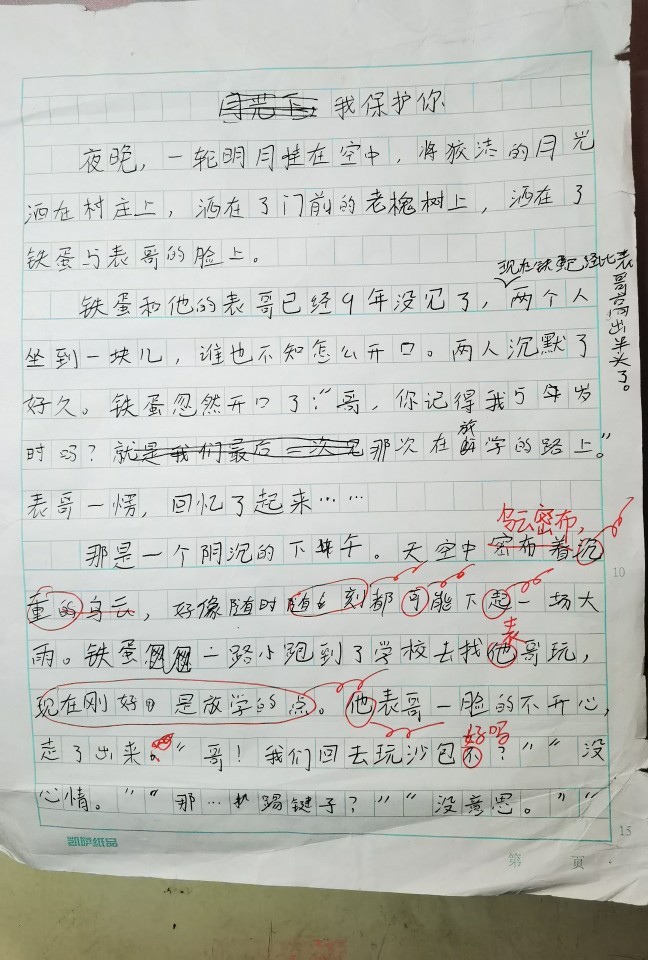 我保护你
夜晚，一轮明月挂在空中，将皎洁的月光
洒在村庄上，洒在了门前的老槐树上，洒在了
铁蛋与表哥的脸上。
现在铁蛋已经比表哥高出半头了。
铁蛋和他的表哥已经9年没见了，两个人
坐到一块儿，谁也不知怎么开口。两人沉默了
好久。铁蛋忽然开口了：“哥，你记得我5年岁
时吗？就是我们最后一次见那次在放学的路上。”
表哥一愣，回忆了起来……
乌云密布，
那是一个阴沉的下午。天空中密布着沉
10
重的乌云，好像随时随刻都可能下起一场大
表
雨。铁蛋一路小跑到了学校去找他哥玩，
现在刚好是放学的点。他表哥一脸的不开心，
好吗
走了出来。“哥！我们回去玩沙包不？”“没
心情。”“那…踢毽子？”“没意思。”“
凯萨纸品
15
第 页